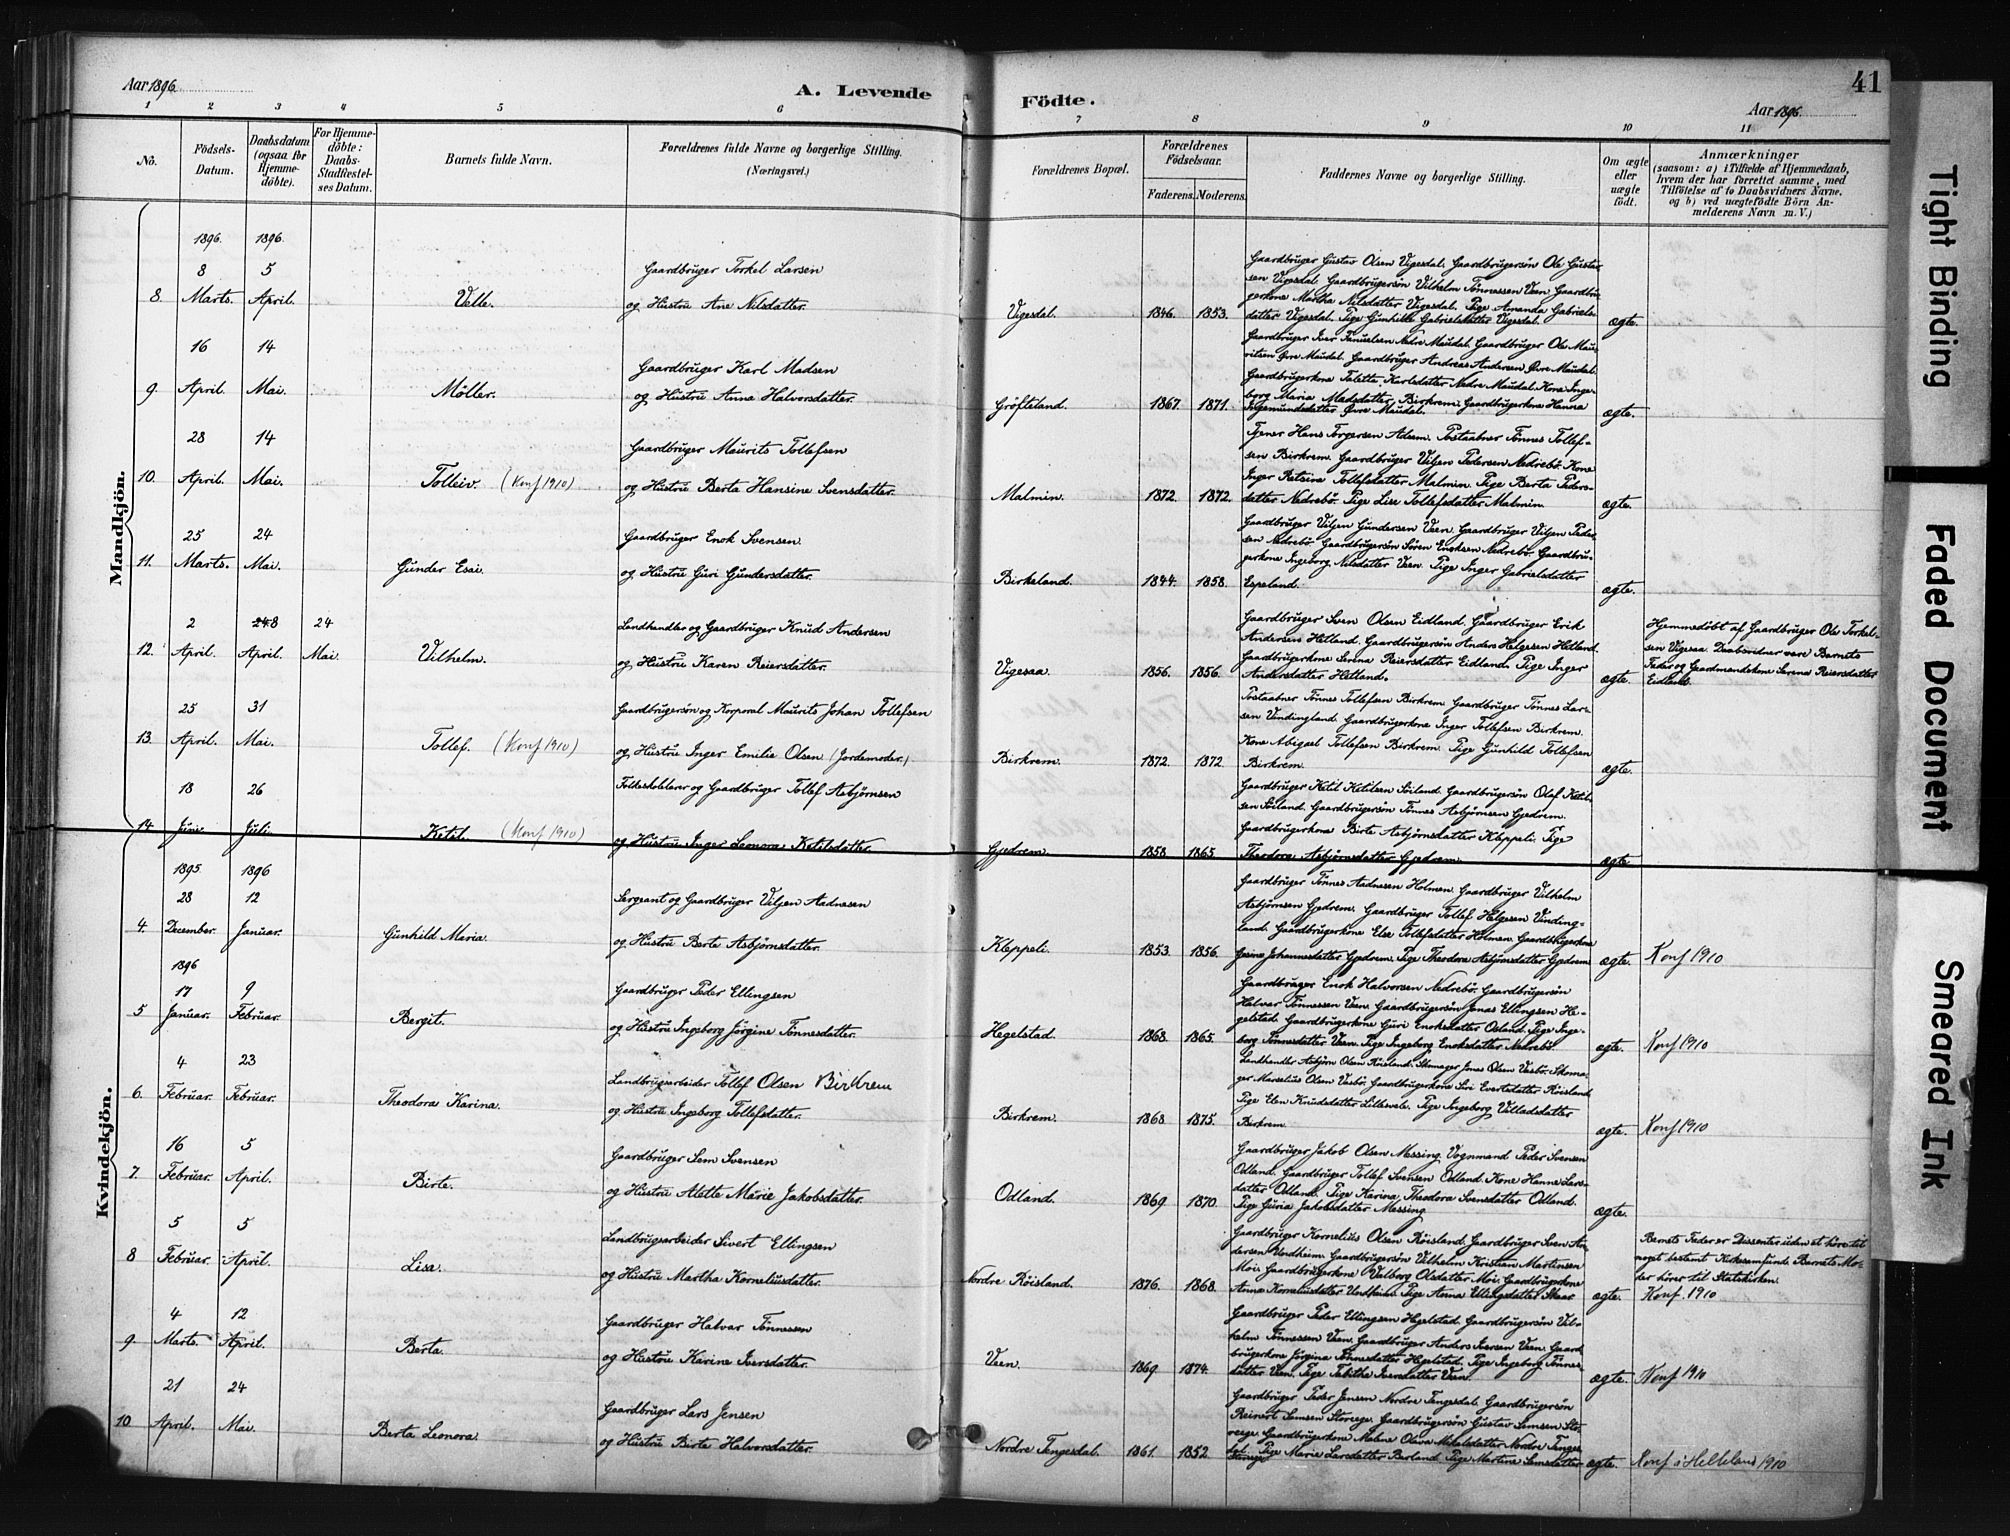 Aar 1896.
A. Levende Födte.
Aar 1896.
41
1 2 3 4 5 6 7 8 9 10 11
No.
Födsels-Datum.
Daabsdatum (ogsaa for Hjemme-döbte).
For Hjemme-döbte: Daabs-Stadfæstel-ses Datum.
Barnets fulde Navn.
Forældrenes fulde Navne og borgerlige Stilling.
(Næringsvei.)
Forældrenes Bopæl.
Forældrenes Födselsaar.
Faderens. Moderens.
Faddernes Navne og borgerlige Stilling.
Om ægte eller uægte födt.
Anmærkninger
(saasom: a) i Tilfælde af Hjemmedaab,
hvem der har forrettet samme, med
Tilföielse af to Daabsvidners Navne,
og b) ved uægtefödte Börn An-
melderens Navn m. V.)
Mandkjön.
1896. 1896.
8 5 Gaardbruger Torkel Larsen
8. Marts. April. Velle. og Hustru Ane Nilsdatter. Vigesdal. 1846. 1853. ægte.
Gaardbruger Gustav Olsen Vigesdal. Gaardbrugersøn Ole Gustav-
sen Vigesdal. Gaardbrugersøn Vilhelm Tønnessen Veen. Gaardbru-
gerkone Martha Nilsdatter Vigesdal. Pige Amanda Gabriels-
datter Vigesdal. Pige Gunhilde Gabrielsdatter Vigesdal.
16 14 Gaardbruger Karl Madsen
9. April. Mai. Möller. og Hustru Anna Halvorsdatter. Gröfteland. 1867. 1871. ægte.
Gaardbruger Iver Tønnessen Nedre Maudal. Gaardbruger Ole Mau-
ritsen Øvre Maudal. Gaardbruger Andreas Andersen Øvre Maudal.
Gaardbrugerkone Talette Karlsdatter Nedre Maudal. Kone Inge-
borg Maria Madsdatter Birkrem. Gaardbrugerkone Hanna
Ingemundsdatter Øvre Maudal.
28 14 Gaardbruger Maurits Tollefsen
10. April. Mai. Tolleiv. (Konf 1910) og Hustru Berta Hansine Svensdatter. Malmin. 1872. 1872. ægte.
Tjener Hans Torgersen Adsem. Postaabner Tønnes Tollef-
sen Birkrem. Gaardbruger Viljen Pedersen Nedrebö. Kone
Inger Retsine Tollefsdatter Malmin. Pige Berta Peders-
datter Nedrebö. Pige Lise Tollefsdatter Malmin.
25 24 Gaardbruger Enok Svensen
11. Marts. Mai. Gunder Esai. og Hustru Guri Gundersdatter. Birkeland. 1844. 1858. ægte.
Gaardbruger Viljen Gundersen Veen. Gaardbruger Viljen Peder-
sen Nedrebö. Gaardbrugersøn Søren Enoksen Nedrebö. Gaardbru-
gerkone Ingeborg Nilsdatter Veen. Pige Inger Gabrielsdatter
Espeland.
2 8 24 Landhandler og Gaardbruger Knud Andersen
12. April. April. Mai. Vilhelm. og Hustru Karen Reiersdatter. Vigesaa. 1856. 1856. ægte.
Gaardbruger Sven Olsen Eidland. Gaardbruger Erik
Andersen Hetland. Gaardbrugersøn Anders Helgesen Hetland.
Gaardbrugerkone Serina Reiersdatter Eidland. Pige Inger
Andersdatter Hetland.
Hjemmedöbt af Gaardbruger Ole Torkel-
sen Vigesaa. Daabsvidner vare Barnets
Fader og Gaardmandskone Serina Reiersdatter
Eidland.
25 31 Gaardbrugersøn og Korporal Maurits Johan Tollefsen
13. April. Mai. Tollef. (Konf 1910) og Hustru Inger Emilie Olsen (Jordemoder.) Birkrem. 1872. 1872. ægte.
Postaabner Tønnes Tollefsen Birkrem. Gaardbruger Tønnes Lar-
sen Vindingland. Gaardbrugerkone Inger Tollefsen Birkrem.
Kone Abigael Tollefsen Birkrem. Pige Gunhild Tollefsen
Birkrem.
18 26 Folkeskolelærer og Gaardbruger Tollef Asbjørnsen
14 Juni. Juli. Ketil. (Konf 1910) og Hustru Inger Leonora Ketilsdatter. Gjedrem. 1858. 1865. ægte.
Gaardbruger Ketil Ketilsen Söiland. Gaardbrugersøn Olaf Ketil-
sen Söiland. Gaardbrugersøn Tønnes Asbjørnsen Gjedrem.
Gaardbrugerkone Birte Asbjørnsdatter Kleppeli. Pige
Theodora Asbjørnsdatter Gjedrem.
Kvindekjön.
1895 1896
28 12 Sergeant og Gaardbruger Viljen Aadnesen
4 December. Januar. Gunhild Maria. og Hustru Berte Asbjørnsdatter. Kleppeli. 1853. 1856. ægte. Konf 1910
Gaardbruger Tønnes Aadnesen Holmen. Gaardbruger Vilhelm
Asbjørnsen Gjedrem. Gaardbruger Tollef Helgesen Vinding-
land. Gaardbrugerkone Else Tollefsdatter Holmen. Gaardbrugerkone
Gesine Johannesdatter Gjedrem. Pige Theodora Asbjørnsdatter Gjedrem.
1896
17 9 Gaardbruger Peder Ellingsen
5 Januar. Februar. Bergit. og Hustru Ingeborg Jørgine Tønnesdatter. Hegelstad. 1868. 1865. ægte. Konf 1910
Gaardbruger Enok Halvorsen Nedrebö. Gaardbrugersøn
Halvar Tønnessen Veen. Gaardbrugersøn Jonas Ellingsen He-
gelstad. Gaardbrugerkone Guri Enoksdatter Odland. Pige Inge-
borg Tønnesdatter Veen. Pige Ingeborg Enoksdatter Nedrebö.
4 23 Landbrugsarbeider Tollef Olsen Birkrem
6. Februar. Februar. Theodora Karina. og Hustru Ingeborg Tollefsdatter. Birkrem. 1868 1875. ægte. Konf 1910
Landhandler Asbjørn Olsen Röisland. Skomager Jones Olsen Vasbö. Skoma-
ger Marselius Olsen Vasbö. Gaardbrugerkone Siri Evertsdatter Röisland
Pige Elen Knudsdatter Lillevele. Pige Ingeborg Villadsdatter
Birkrem.
16 5 Gaardbruger Sem Svensen
7 Februar. April. Birte. og Hustru Alette Marie Jakobsdatter. Odland. 1869. 1870. ægte.
Gaardbruger Jakob Olsen Messing. Vognmand Peder Svensen
Odland. Gaardbruger Tollef Svensen Odland. Kone Hanne Lars-
datter Odland. Pige Karina Theodora Svensdatter Odland.
Pige Guria Jakobsdatter Messing.
5 5 Landbrugsarbeider Sivert Ellingsen
8 Februar. April. Lisa. og Hustru Martha Korneliusdatter. Nordre Röisland. 1876. 1868. ægte.
Gaardbruger Kornelius Olsen Röisland. Gaardbruger Sven An-
dersen Undheim. Gaardbrugersøn Vilhelm Kristian Martinsen
Moi. Gaardbrugerkone Valborg Olsdatter Moi. Gaardbrugerkone
Anna Korneliusdatter Undheim. Pige Anna Ellingsdatter Skaar.
Barnets Fader er Dissenter uden at höre til
noget bestemt Kirkesamfund. Barnets Mo-
der hörer til Statskirken.
Konf. 1910
4 12 Gaardbruger Halvar Tønnessen
9. Marts. April. Berta. og Hustru Karine Iversdatter. Veen. 1869. 1874. ægte. Konf 1910
Gaardbruger Peder Ellingsen Hegelstad. Gaardbrugersøn Vil-
helm Tønnessen Veen. Gaardbruger Anders Iversen Veen. Gaard-
brugerkone Jørgina Tønnesdatter Hegelstad. Pige Ingeborg Tønnes-
datter Veen. Pige Tabitha Iversdatter Veen.
21 24 Gaardbruger Lars Jensen
10 April. Mai. Berta Leonora. og Hustru Birte Halvorsdatter. Nordre Tengesdal. 1861. 1852. ægte. Konf i Helleland 1910
Gaardbruger Peder Jensen Nordre Tengesdal. Gaardbrugersøn
Reinert Samsen Storeege. Gaardbrugersøn Gustav Samsen Sto-
reege. Gaardbrugerkone Malene Olava Mikalsdatter Nordre Tenges-
dal. Pige Marie Larsdatter Berland. Pige Martine Samsdatter
Storeege
Tight Binding
Faded Document
Smeared Ink